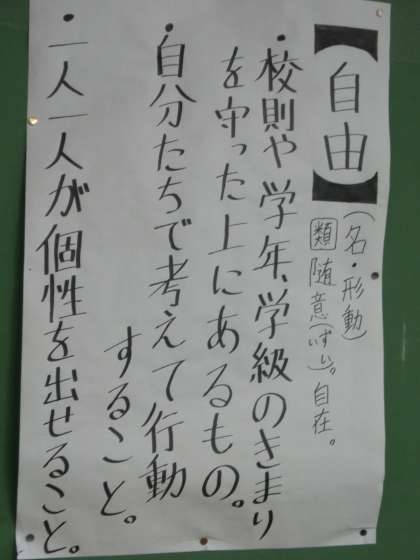 【自由】
(名・形動)
類 随意(ずい)。自在。
・校則や学年、学級のきまり
を守った上にあるもの。
・自分たちで考えて行動
すること。
・一人一人が個性を出せること。